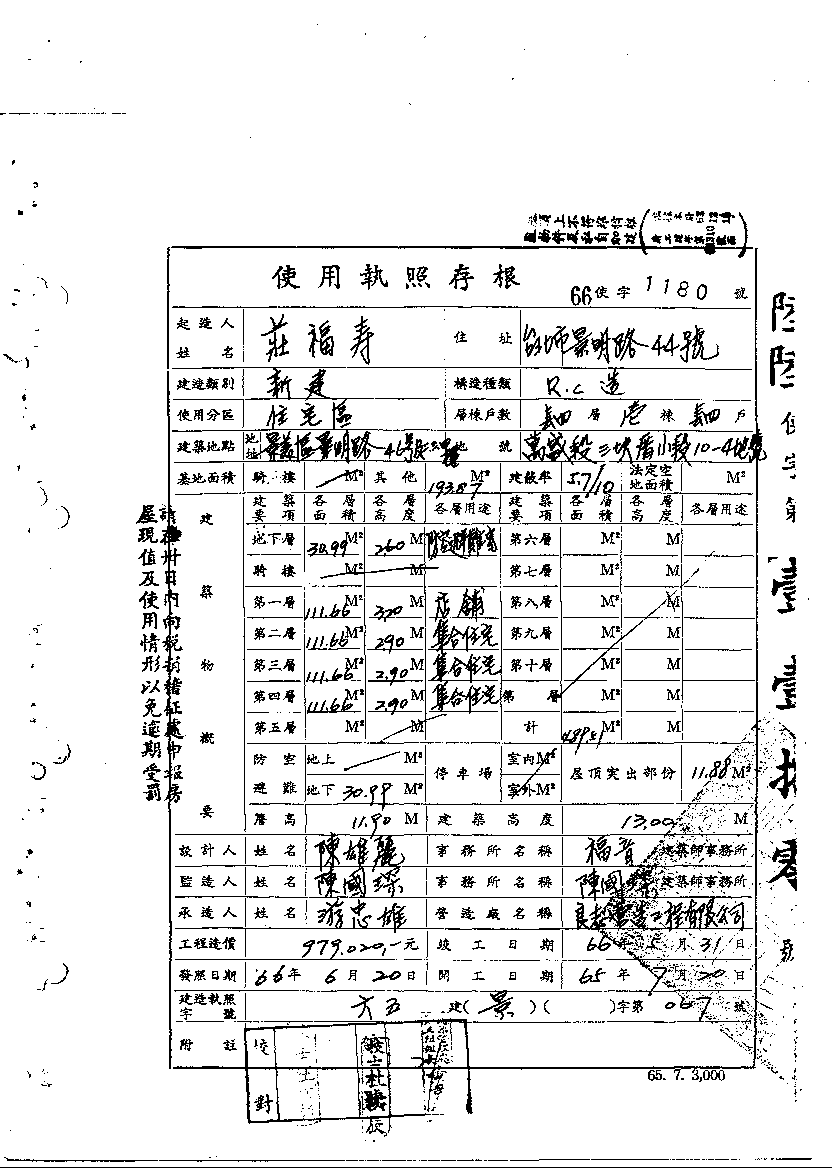 使用執照存根
66使字1180號
起造人姓名 莊福寿 住址 台北市景明路44號
建造類別 新建 構造種類 R.C造
使用分區 住宅區 層棟戶數 肆層壱棟肆戶
建築地點 地址 景美區景明路46號 地號 萬盛段三塊厝小段10-4地號
基地面積 騎樓 M² 其他 193.87 M² 建蔽率 5.7/10 法定空地面積 M²
建築物概要 建築要項 各層面積 各層高度 各層用途 建築要項 各層面積 各層高度 各層用途
地下層 30.99 M² 260 M 防空避難室 第六層 M² M
騎樓 M² M 第七層 M² M
第一層 111.66 M² 3.20 M 店舖 第八層 M² M
第二層 111.66 M² 2.90 M 集合住宅 第九層 M² M
第三層 111.66 M² 2.90 M 集合住宅 第十層 M² M
第四層 111.66 M² 2.90 M 集合住宅 第 層 M² M
第五層 M² M 計 489.51 M² M
防空避難 地上 M² 停車場 室內 M² 屋頂突出部份 11.88 M²
地下 30.99 M² 室外 M²
簷高 11.90 M 建築高度 13.00 M
設計人 姓名 陳雄麗 事務所名稱 福音 建築師事務所
監造人 姓名 陳國琛 事務所名稱 陳國琛 建築師事務所
承造人 姓名 游忠雄 營造廠名稱 營造工程有限公司
工程造價 979,020,-元 竣工日期 66年5月31日
發照日期 66年6月20日 開工日期 65年7月20日
建造執照字號 六五建(景)( )字第067號
附註
校對
65. 7. 3,000
請在卅日內向稅捐稽征處申報房
屋現值及使用情形以免逾期受罰
使字第
號